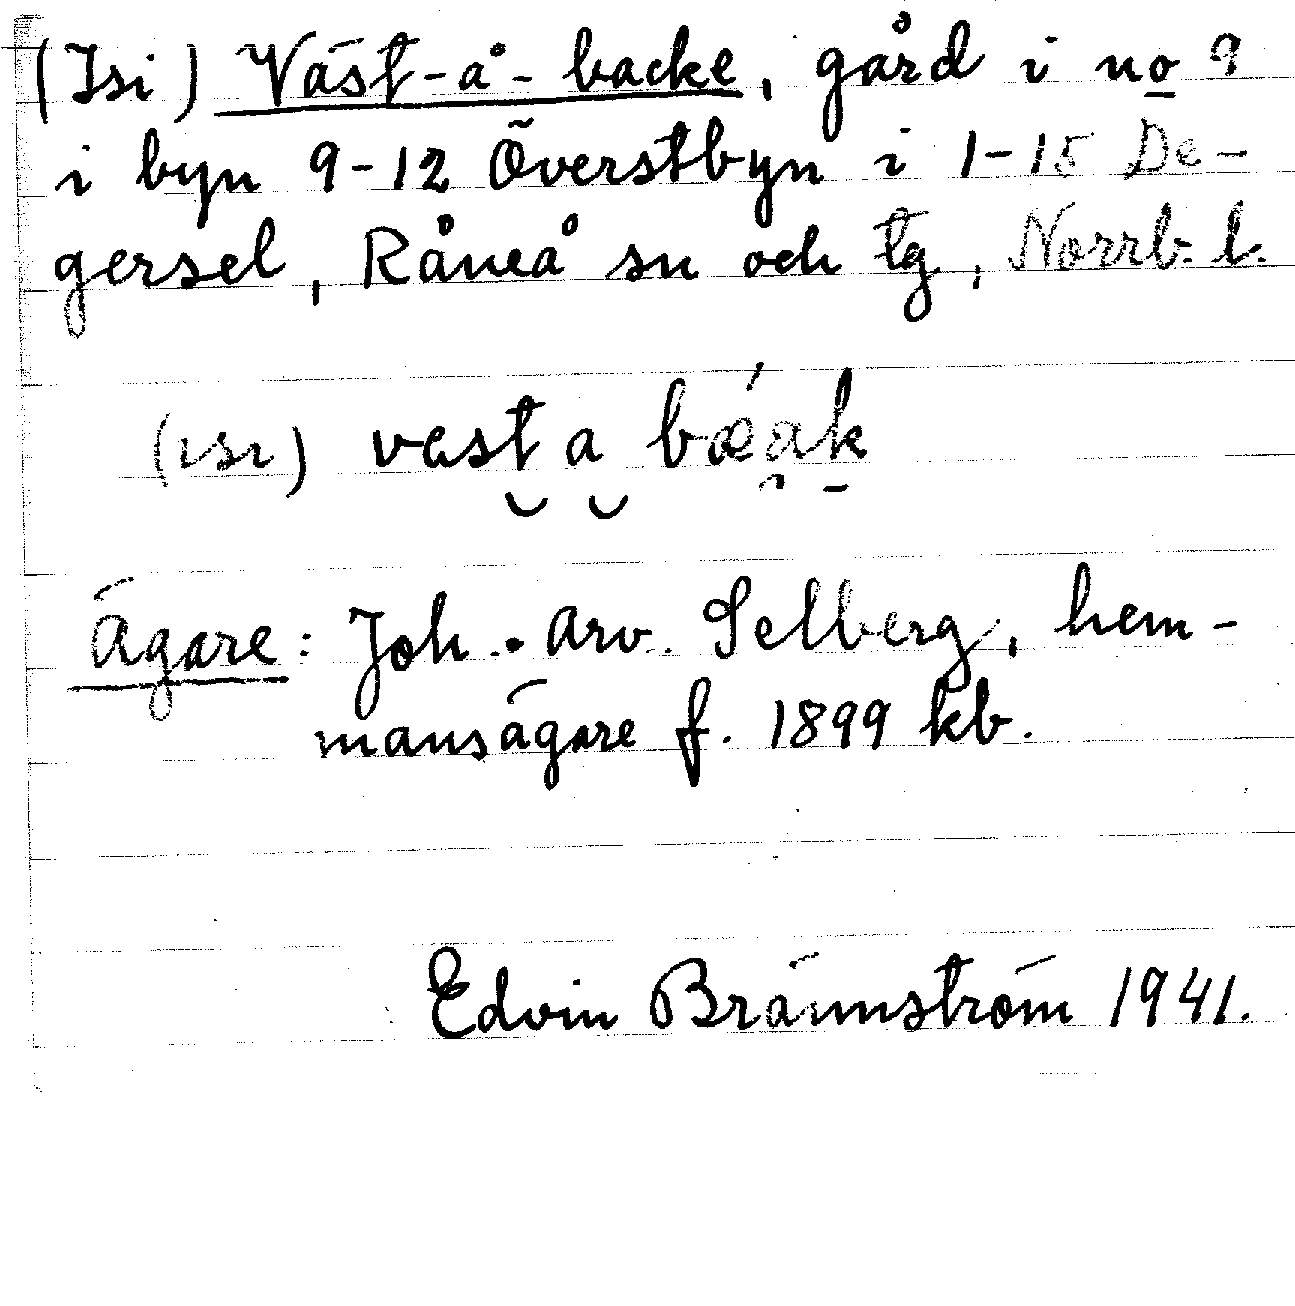 (Isi) Väst-å-backe, gård i no 9
i byn 9-12 Överstbyn i 1-15 De-
gersel, Råneå sn och tg, Norrb. l.
(ısı) vest a bæak
Ägare: Joh. Arv. Selberg, hem-
mansägare f. 1899 kb.
Edvin Brännström 1941.